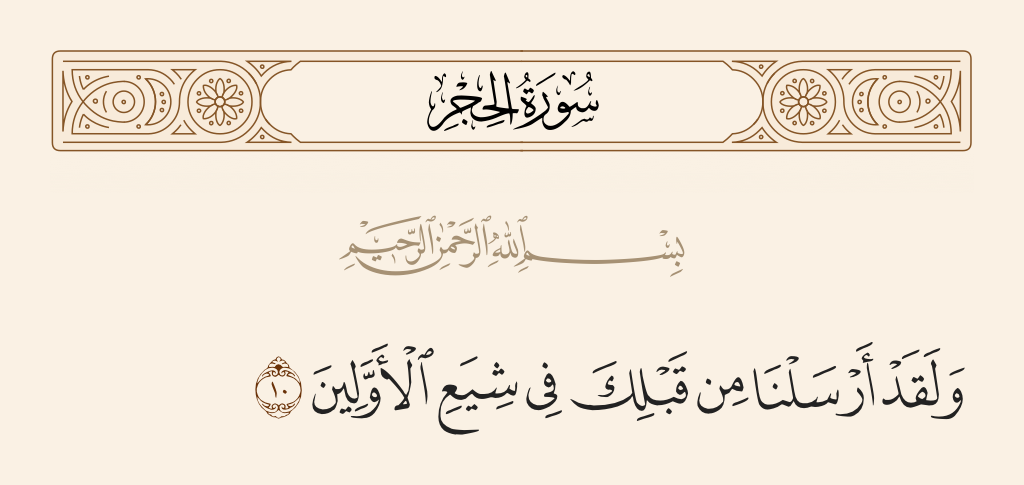 سُورَةُ الحِجْرِ
بِسْمِ ٱللَّهِ ٱلرَّحْمَٰنِ ٱلرَّحِيمِ
وَلَقَدْ أَرْسَلْنَا مِن قَبْلِكَ فِى شِيَعِ ٱلْأَوَّلِينَ ١٠